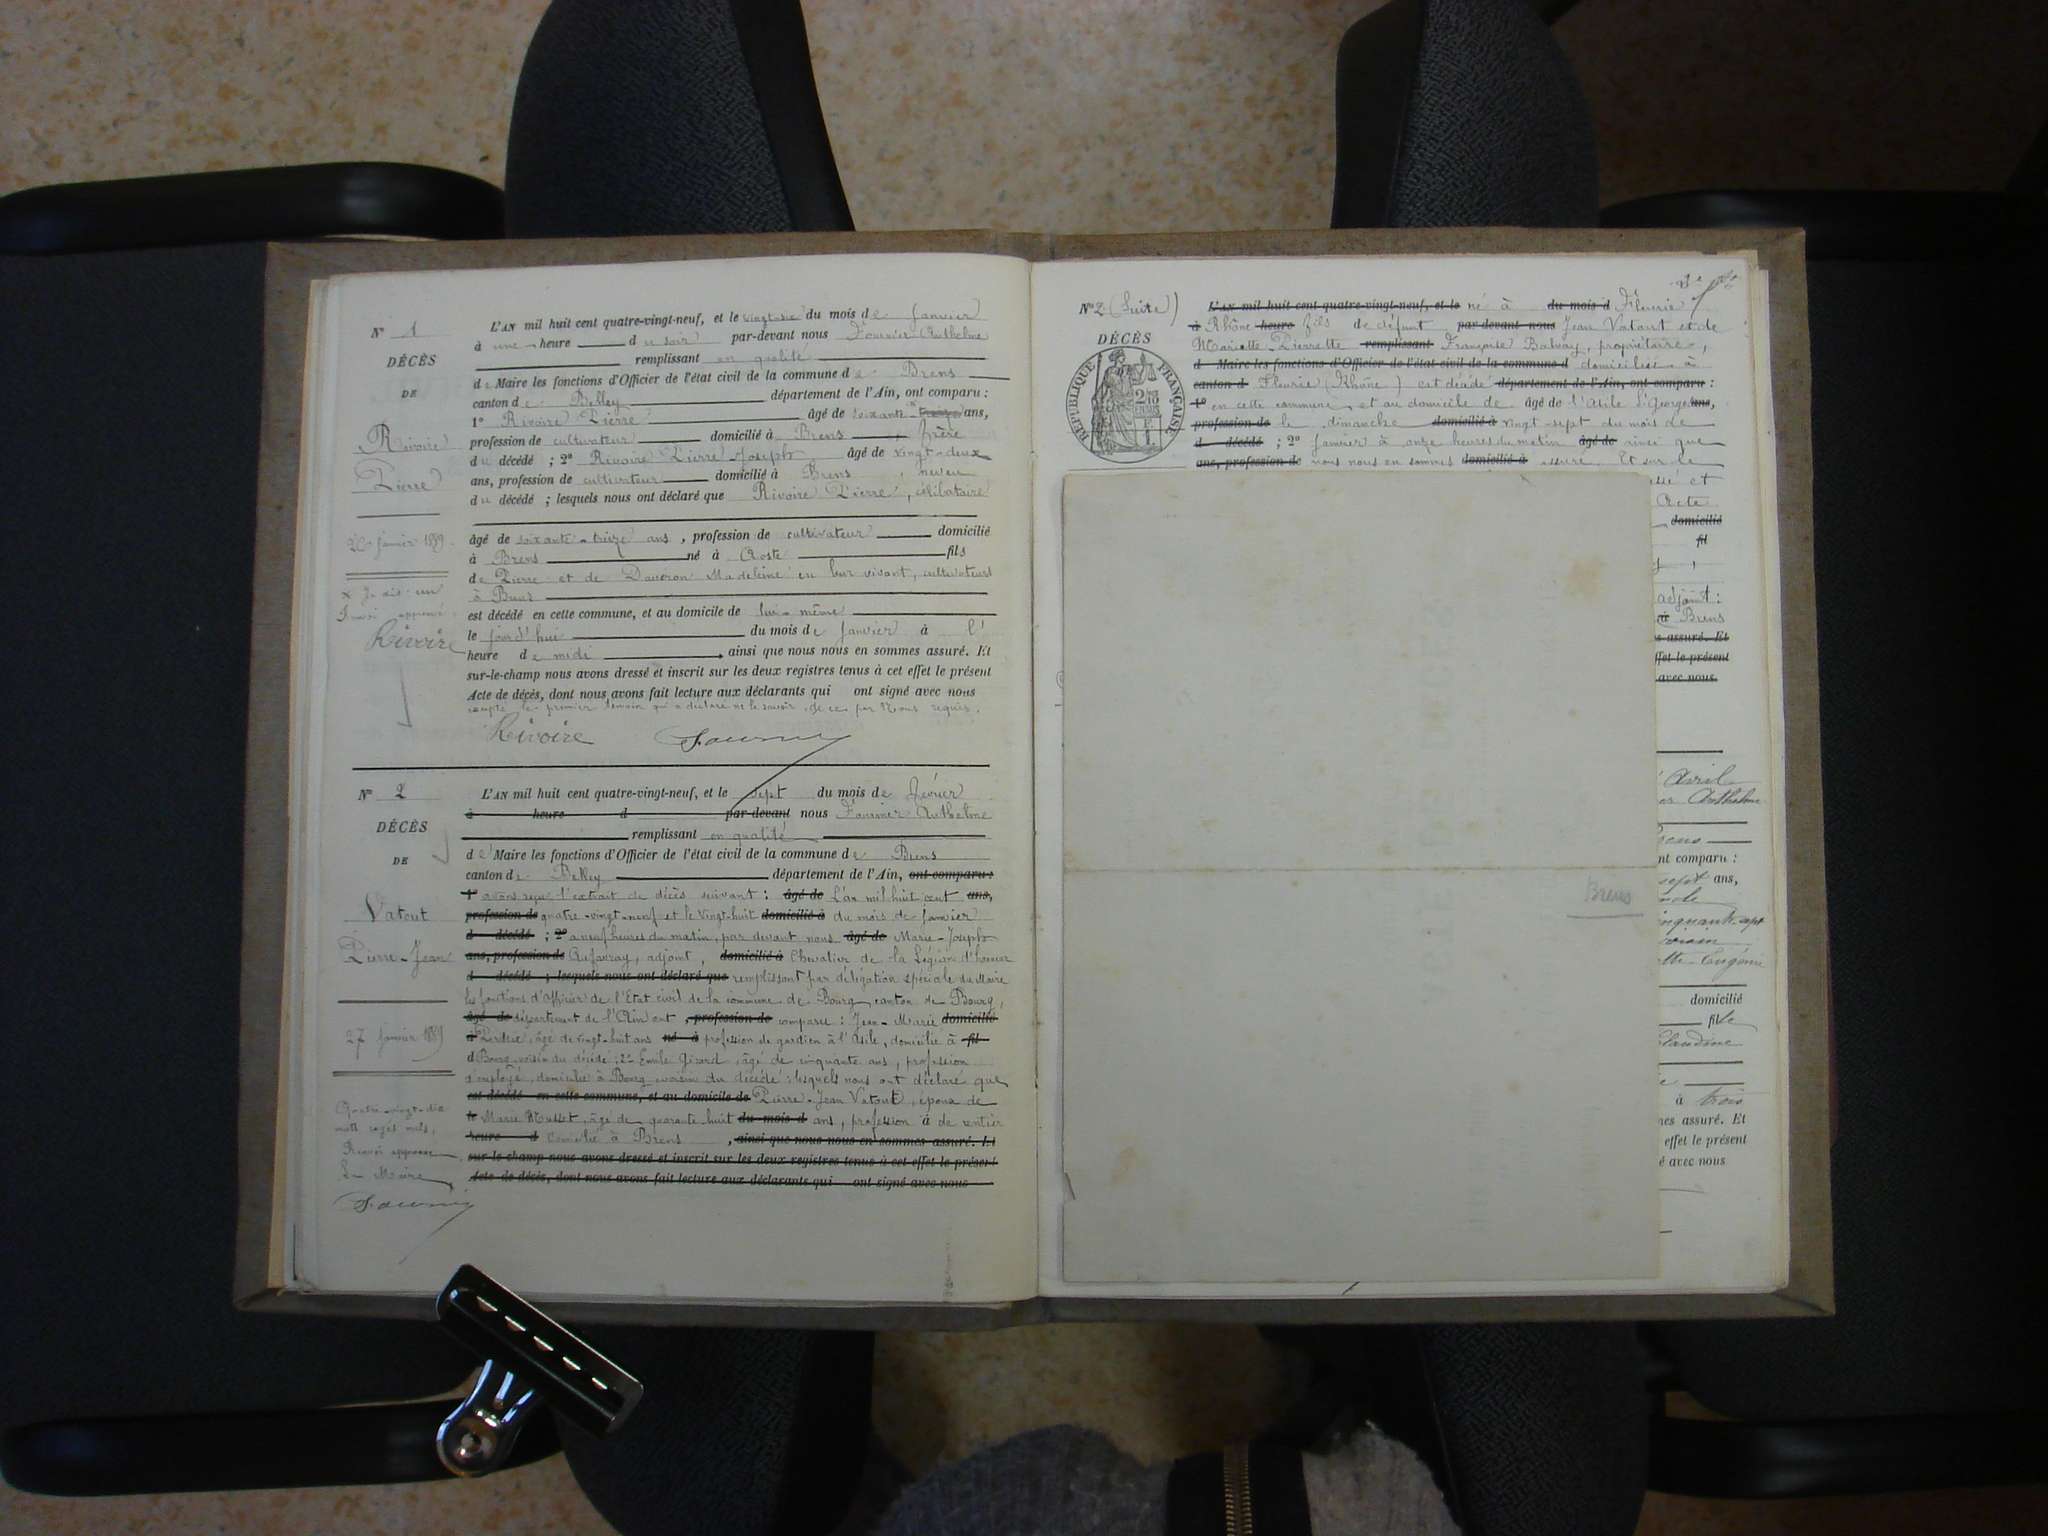 N° 1
DÉCÈS
DE
Rivoire
Pierre
26 janvier 1889
Rivoire
L'AN mil huit cent quatre-vingt-neuf, et le vingt-six du mois de janvier
à une heure du soir par-devant nous Fournier Anthelme
remplissant en qualité
de Maire les fonctions d'Officier de l'état civil de la commune de Brens
canton de Belley département de l'Ain, ont comparu :
1° Rivoire Pierre âgé de soixante ans,
profession de cultivateur domicilié à Brens , frère
du décédé ; 2° Rivoire Pierre Joseph âgé de vingt-deux
ans, profession de cultivateur domicilié à Brens , neveu
du décédé ; lesquels nous ont déclaré que Rivoire Pierre, célibataire
âgé de soixante-treize ans , profession de cultivateur domicilié
à Brens né à Aoste fils
de Pierre et de Madeleine en leur vivant, cultivateurs
à Brens
est décédé en cette commune, et au domicile de lui-même
le jourd'hui du mois de janvier à l'
heure de midi , ainsi que nous nous en sommes assuré. Et
sur-le-champ nous avons dressé et inscrit sur les deux registres tenus à cet effet le présent
Acte de décès, dont nous avons fait lecture aux déclarants qui ont signé avec nous
excepté le premier témoin qui a déclaré ne le savoir de ce par Nous requis.
Rivoire Fournier
N° 2
DÉCÈS
DE
Vatout
Pierre-Jean
27 janvier 1889
Quatre-vingt-dix
mots rayés nuls,
Renvoi approuvé
Le Maire
Fournier
L'AN mil huit cent quatre-vingt-neuf, et le sept du mois de février
à heure d par-devant nous Fournier Anthelme
remplissant en qualité
de Maire les fonctions d'Officier de l'état civil de la commune de Brens
canton de Belley département de l'Ain, ont comparu :
1° avons reçu l'extrait de décès suivant : âgé de L'an mil huit cent ans,
profession de quatre-vingt-neuf et le vingt-huit domicilié à du mois de janvier
d décédé ; 2° à neuf heures du matin, par devant nous âgé de Marie-Joseph
ans, profession de adjoint, domicilié à Chevalier de la Légion d'honneur
d décédé ; lesquels nous ont déclaré que remplissant par délégation spéciale du Maire
les fonctions d'officier de l'Etat civil de la commune de Bourg, canton de Bourg,
âgé de département de l'Ain ont , profession de comparu : Jean-Marie domicilié
à âgé de vingt-huit ans né à profession de gardien à l'Asile, domicilié à fil
d Bourg, voisin du décédé ; 2° Emile Girard, âgé de cinquante ans, profession
d'employé, domicilié à Bourg voisin du décédé ; lesquels nous ont déclaré que
est décédé en cette commune, et au domicile de Pierre-Jean Vatout, époux de
le Marie Musset, âgé de quarante huit du mois d ans, profession à de rentier
heure d domicilié à Brens , ainsi que nous nous en sommes assuré. Et
sur-le-champ nous avons dressé et inscrit sur les deux registres tenus à cet effet le présent
Acte de décès, dont nous avons fait lecture aux déclarants qui ont signé avec nous
N° 2 (Suite)
DÉCÈS
RÉPUBLIQUE FRANÇAISE
L'AN mil huit cent quatre-vingt-neuf, et le né à du mois d Fleurie
à Rhône heure fils de défunt par-devant nous Jean Vatout et de
Mariette Pierrette remplissant Françoise Balvay, propriétaire,
d Maire les fonctions d'Officier de l'état civil de la commune d domiciliés à
canton d Fleurie (Rhône) est décédé département de l'Ain, ont comparu :
1° en cette commune, et au domicile de âgé de l'Asile St George ans,
profession de le dimanche domicilié à vingt-sept du mois de
d décédé ; 2° janvier à onze heures du matin âgé de ainsi que
ans, profession de nous nous en sommes domicilié à assuré. Et sur le
et
Acte
domicilié
fil
adjoint :
à Brens
s assuré. Et
ffet le présent
avec nous.
Brens
Avril
Anthelme
Brens
nt comparu :
sept ans,
cinquante-sept
Eugénie
domicilié
fille
Claudine
à trois
mes assuré. Et
effet le présent
é avec nous